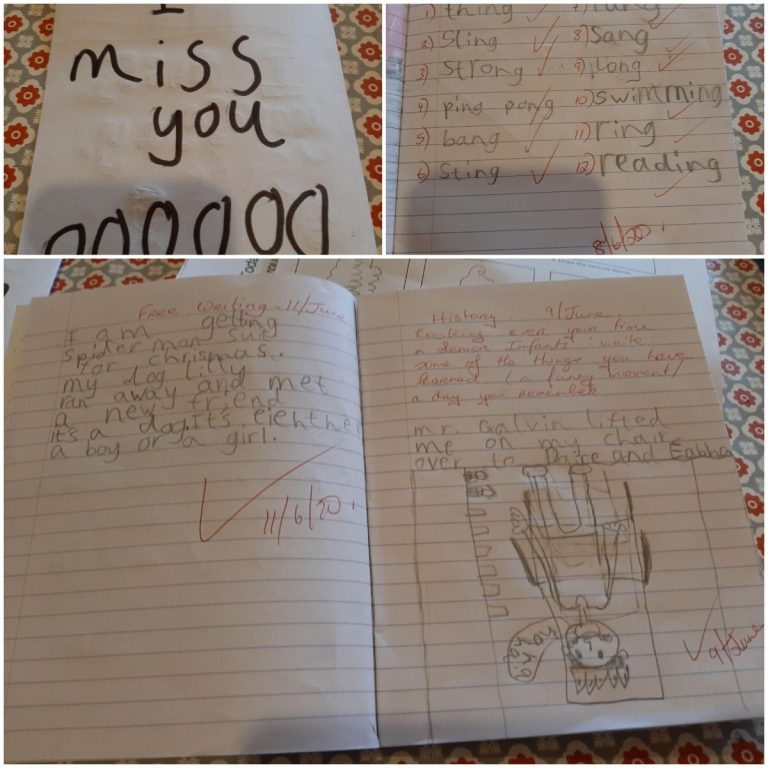 I
miss
you
1) thing
2) Sling
3) Strong
4) ping pong
5) bang
6) Sting
8) Sang
9) long
10) swimming
11) ring
12) reading
8/6/20.
Free Writing - 11/June
I am getting
spider man suit
for chrismas.
my dog lilly
ran away and met
a new friend
it's a dog. it's eiehther
a boy or a girl.
11/6/20.
History: 9/June.
Looking over your time
in Infants: write
some of the things you have
learned (a funny moment/
a day you remember
mr. Galvin lifted
me on my chair
over to and Eabha
haha
ha.ha
9/June